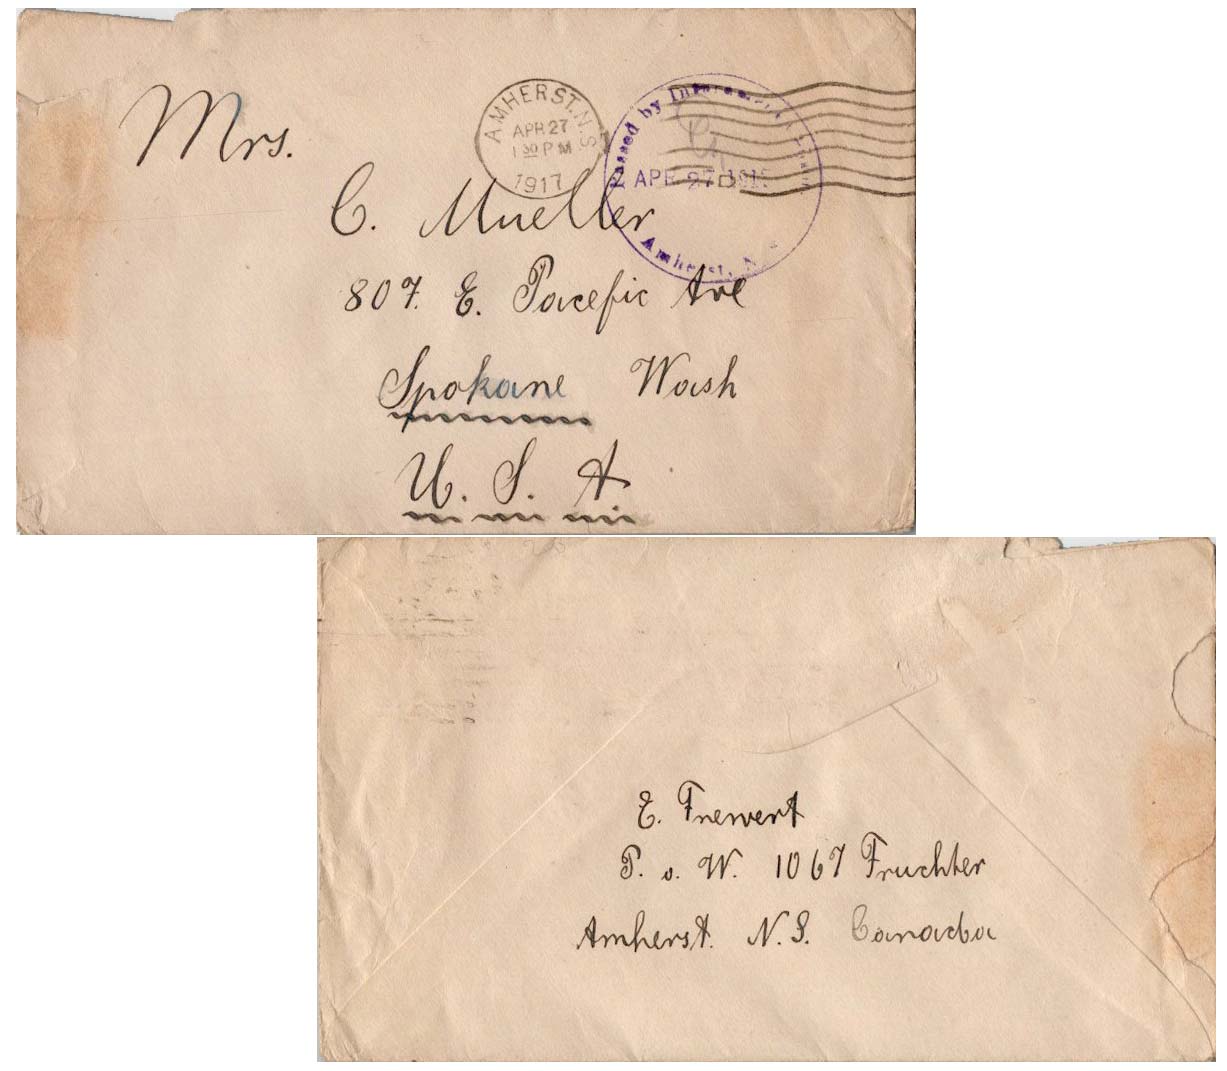 AMHERST. N.S
APR 27
1 30 P M
1917
Passed by
APR 27
Amherst, N.
Mrs.
C. Mueller
807. E. Pacefic Ave
Spokane Wash
U. S. A
E. Frewert
P. o. W. 1067 Fruchter
Amherst. N. S. Canada